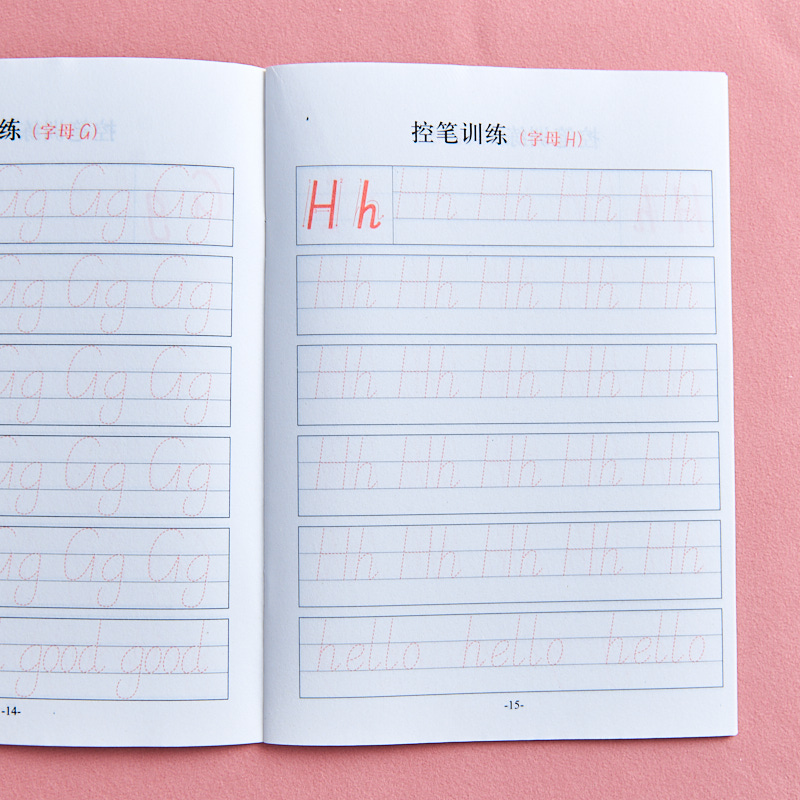 练（字母G）
Gg Gg Gg
Gg Gg Gg
Gg Gg Gg
Gg Gg Gg
Gg Gg Gg
good good
-14-
控笔训练（字母H）
H h Hh Hh Hh Hh
Hh Hh Hh Hh Hh
Hh Hh Hh Hh Hh
Hh Hh Hh Hh Hh
Hh Hh Hh Hh Hh
hello hello hello
-15-